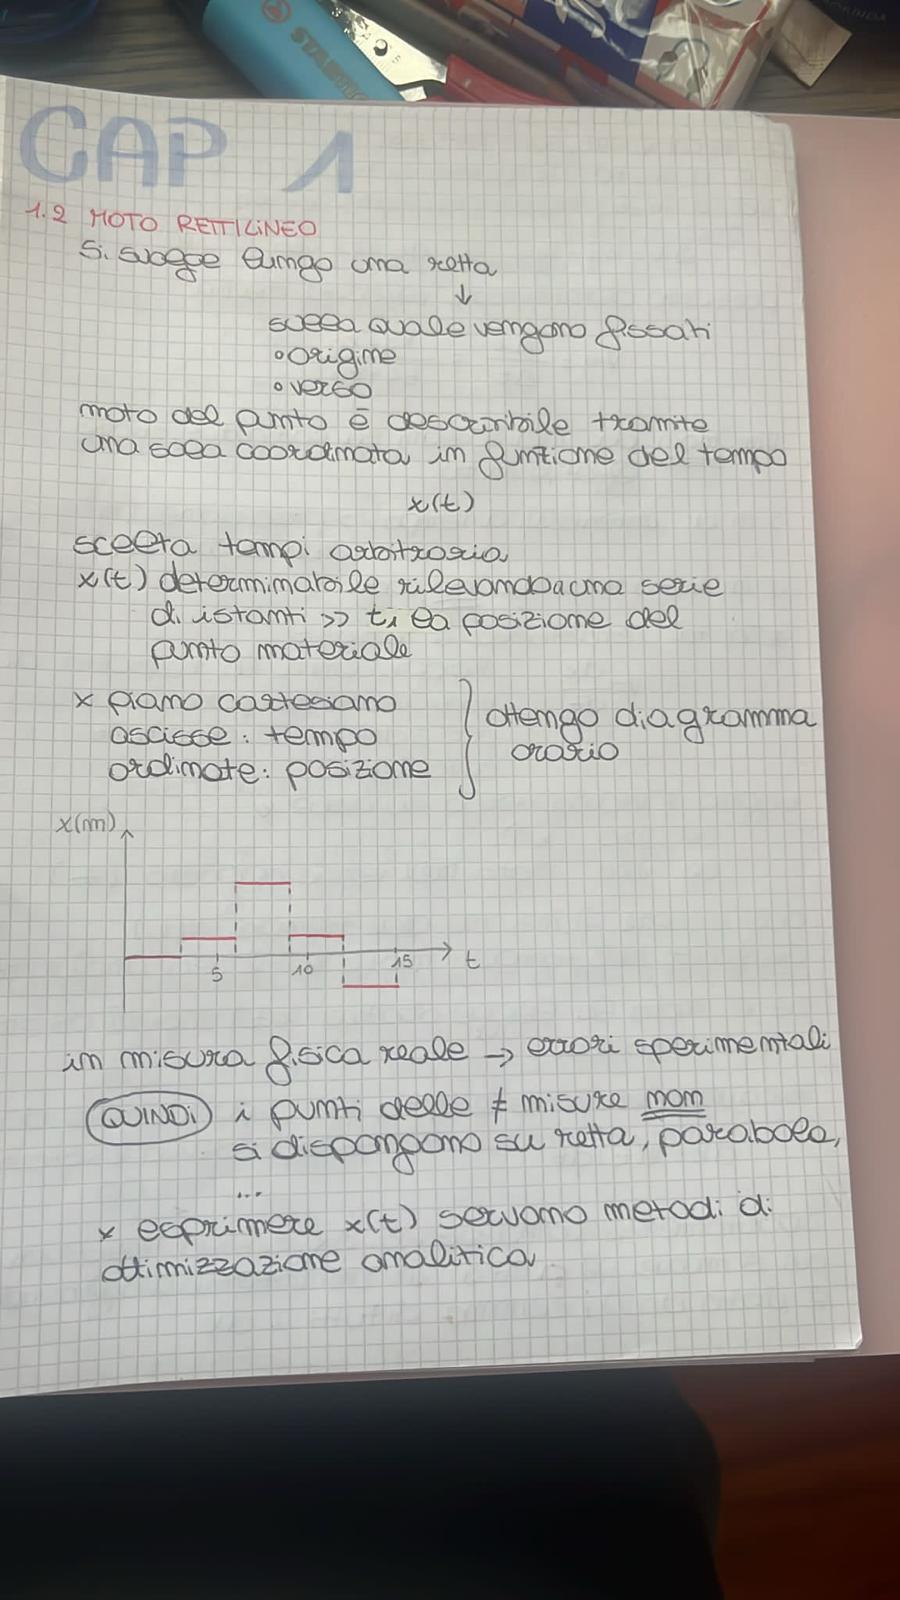 STABILO
CAP 1
1.2 MOTO RETTILINEO
Si svolge lungo una retta
↓
sulla quale vengono fissati
• origine
• verso
moto del punto è descrivibile tramite
una sola coordinata in funzione del tempo
x(t)
scelta tempi arbitraria
x(t) determinabile rilevando a una serie
di istanti >> t₁ la posizione del
punto materiale
x piano cartesiano
ascisse: tempo
ordinate: posizione
ottengo diagramma
orario
x(m)
5 10 15 t
in misura fisica reale → errori sperimentali
QUINDI i punti delle ≠ misure non
si dispongono su retta, parabola,
...
x esprimere x(t) servono metodi di
ottimizzazione analitica